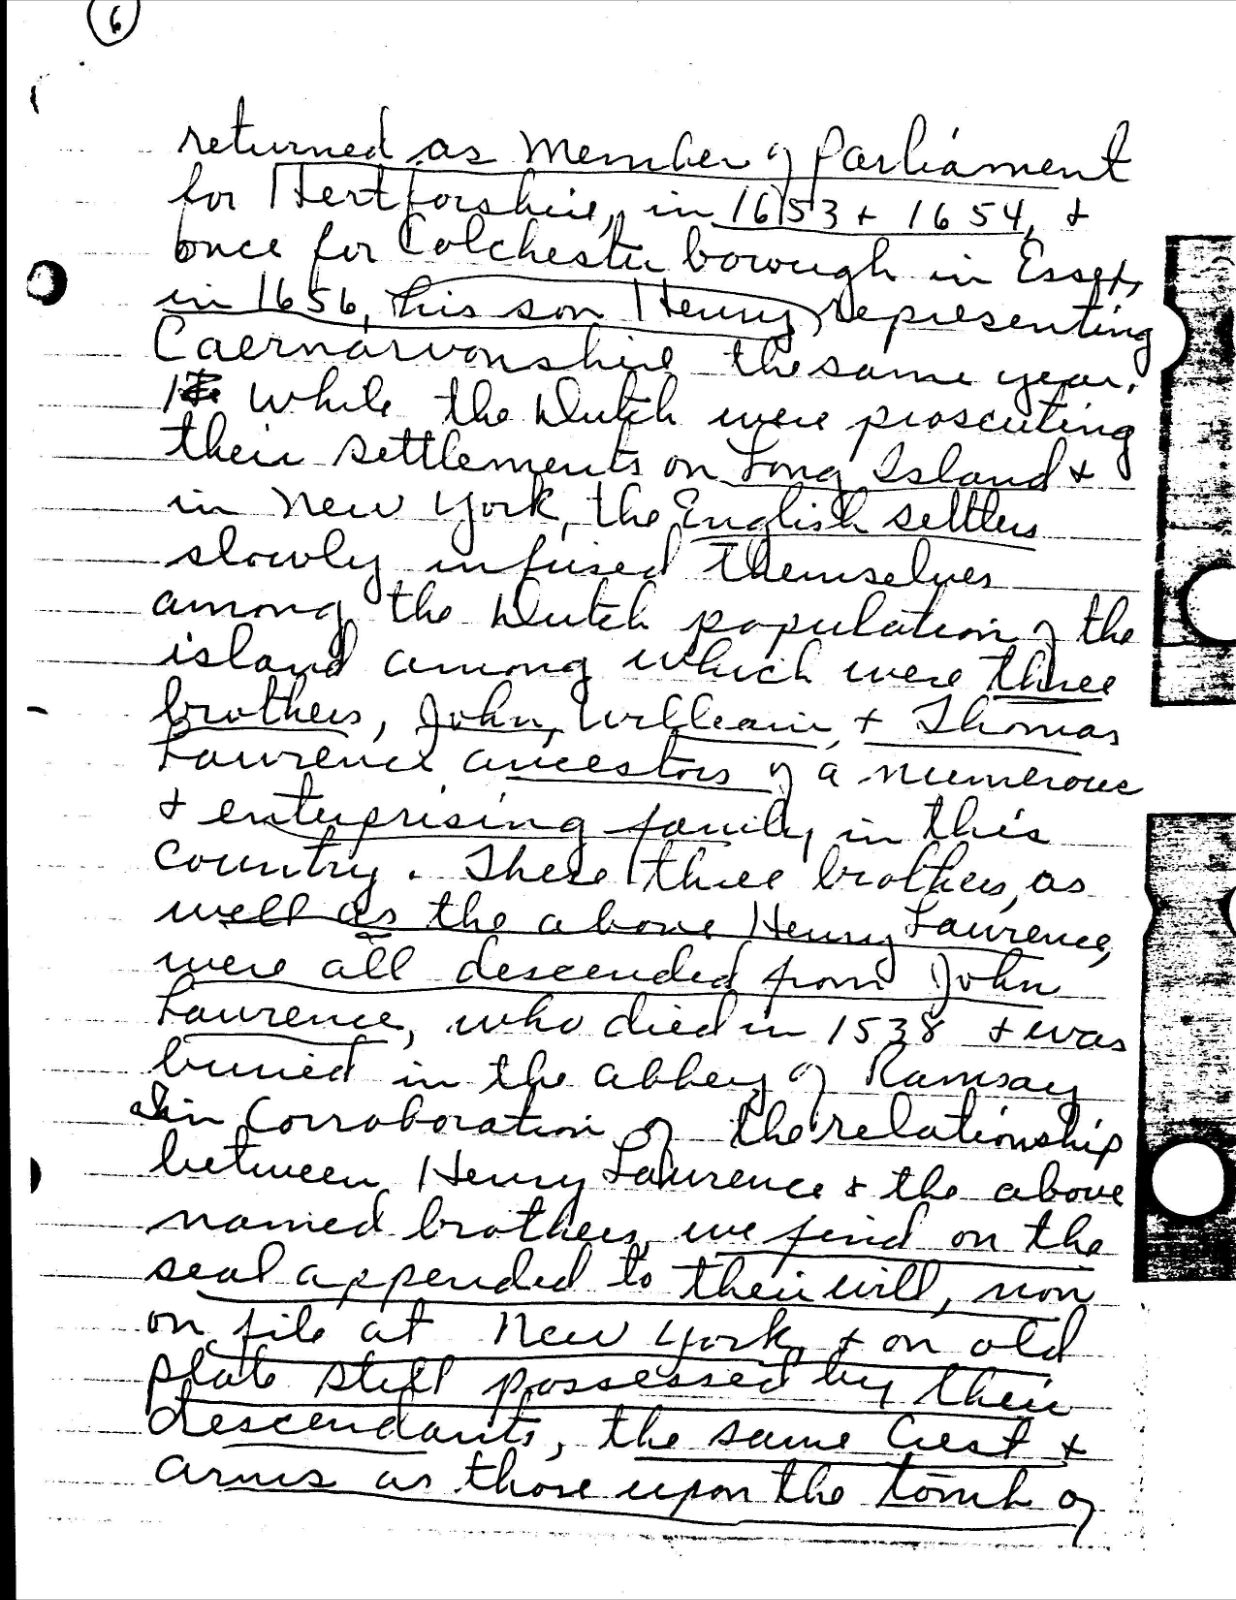 6
returned as Member of Parliament
for Hertforshire, in 1653 + 1654, +
once for Colchester borough in Essex,
in 1656, his son Henry representing
Caernarvonshire the same year.
While the Dutch were proscuting
their settlements on Long Island +
in New York, the English settlers
slowly infused themselves
among the Dutch population of the
island among which were three
brothers, John, William + Thomas
Lawrence ancestors of a numerous
+ enterprising family in this
country. These three brothers, as
well as the above Henry Lawrence,
were all descended from John
Lawrence, who died in 1538 + was
buried in the abbey of Ramsay
in Corroboration of the relationship
between Henry Lawrence & the above
named brothers, we find on the
seal appended to their will, now
on file at New York, + on old
plate still possessed by their
descendants, the same Crest +
arms as those upon the tomb of